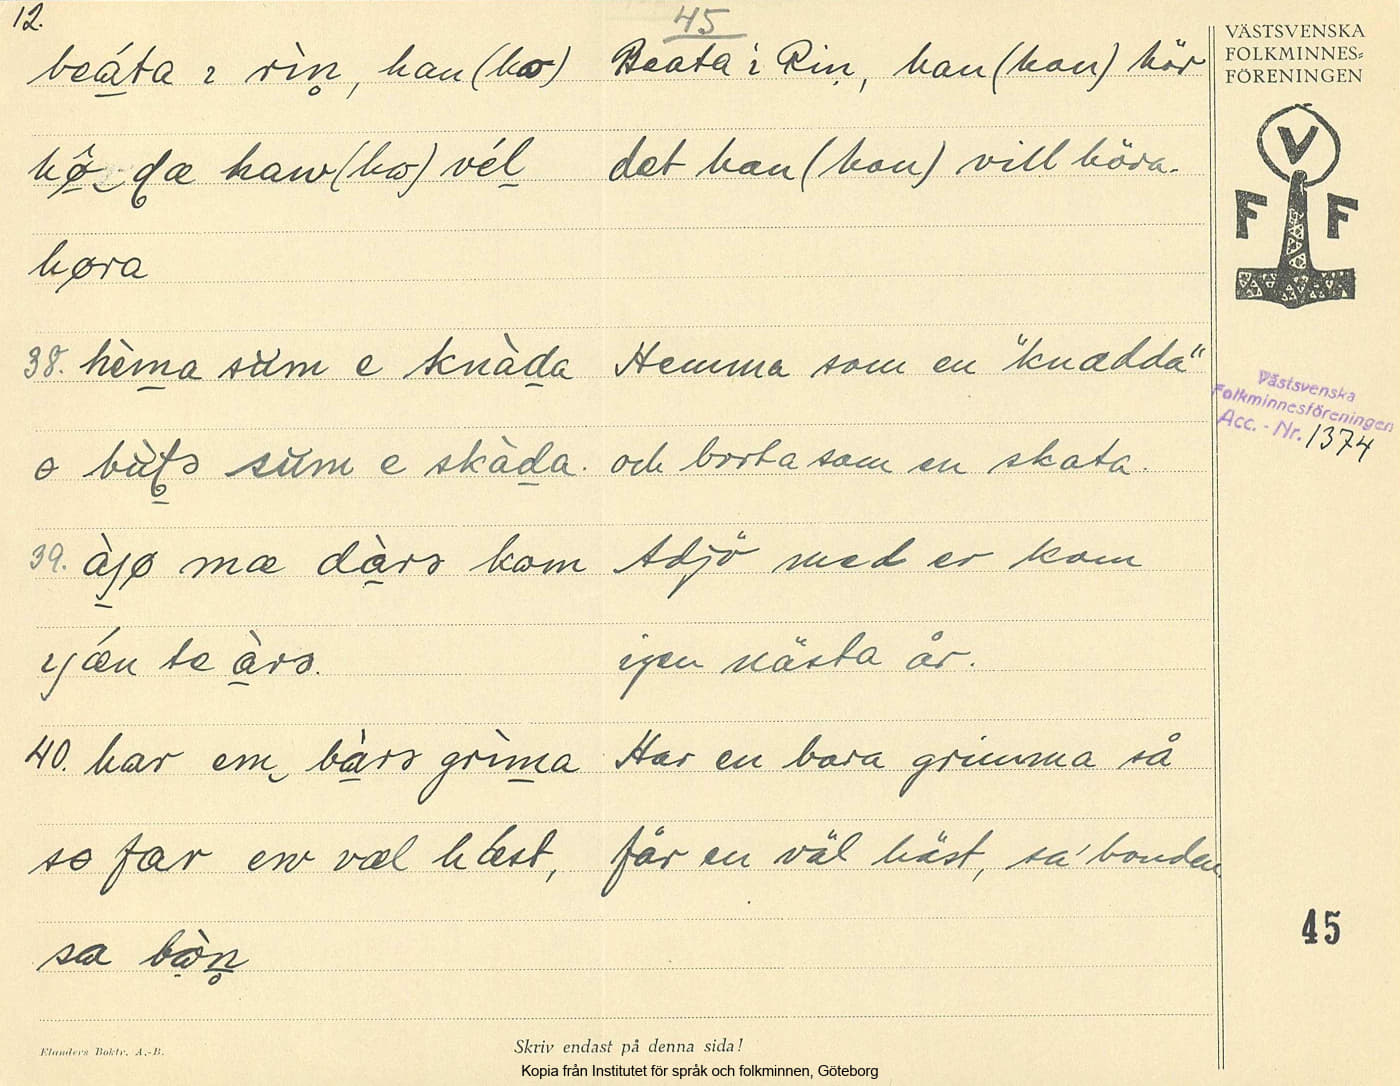 12.
45
beáta ı rìn̥, han (hω) Beata i Rin, han (hon) hör
hø̂ dæ haw (hω) vél det han (hon) vill höra.
høra
38. hèma sŭm e knàda Hemma som en "knadda"
o bùts sŭm e skàda. och borta som en skata.
39. àjø mæ dàrs kom Adjö med er kom
ıjǽn te àrs. igen nästa år.
40. har em bàrs grìma Har en bara grimma så
so far ew væl hæst, får en väl häst, sa' bonden
sa bòn̥
VÄSTSVENSKA
FOLKMINNES=
FÖRENINGEN
V
F F
Västsvenska
Folkminnesföreningen
Acc. - Nr. 1374
45
Elanders Boktr. A.-B.
Skriv endast på denna sida!
Kopia från Institutet för språk och folkminnen, Göteborg